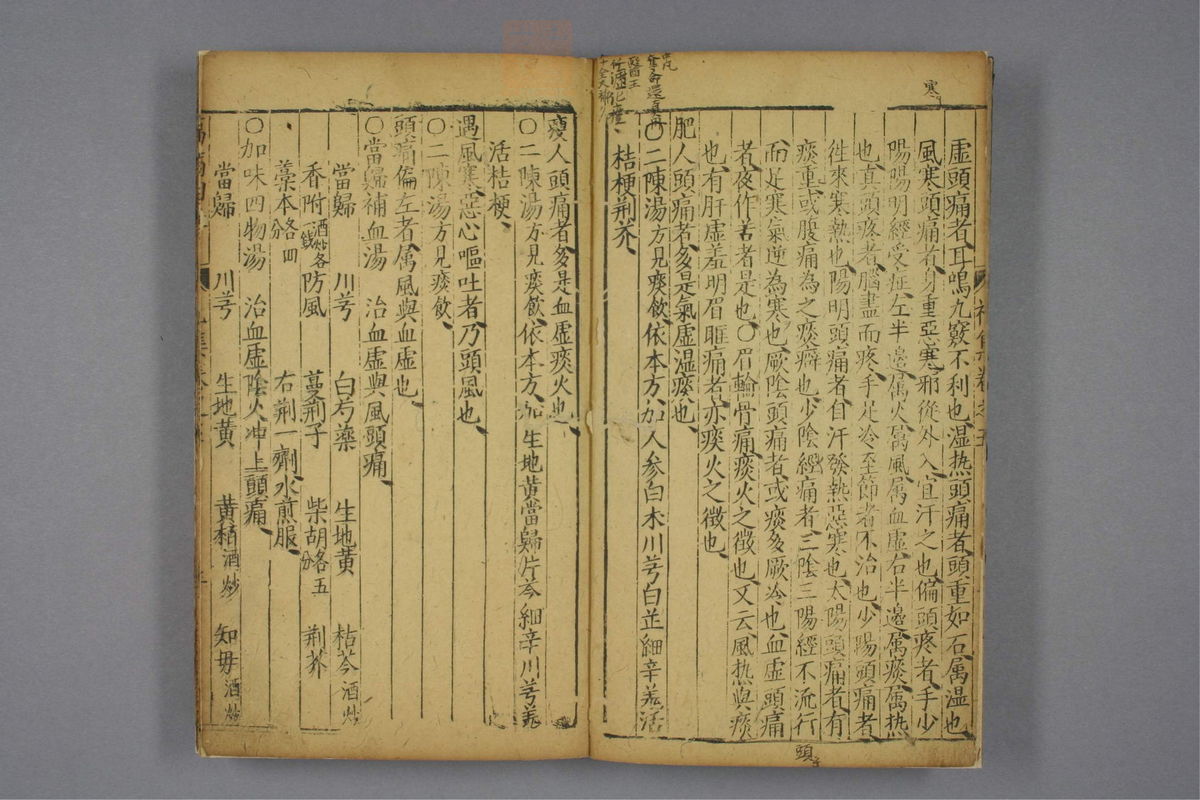 寒
虛頭痛者耳鳴九竅不利也濕热頭痛者頭重如石属湿也
風寒頭痛者身重惡寒邪從外入宜汗之也偏頭疼者手少
陽陽明經受症左半邊属火属風属血虛右半邊属痰属热
也真頭疼者腦盡而疼手足冷至節者不治也少陽頭痛者
徃來寒熱也陽明頭痛者自汗發熱惡寒也太陽頭痛者有
痰重或腹痛為之痰癖也少陰經痛者三陰三陽經不流行
而足寒氣逆為寒也厥陰頭痛者或痰多厥冷也血虛頭痛
者夜作苦者是也〇眉輪骨痛痰火之徵也又云風热與痰
也有肝虛羞明眉眶痛者亦痰火之徵也
肥人頭痛者多是氣虛湿痰也
〇二陳湯方見痰飲依本方加人参白术川芎白芷細辛羗活
桔梗荆芥
頭
瘦人頭痛者多是血虛痰火也
〇二陳湯方見痰飲依本方加生地黄當歸片芩細辛川芎羗
活桔梗
遇風寒惡心嘔吐者乃頭風也
〇二陳湯方見痰飲
頭痛偏左者属風與血虛也
〇當歸補血湯 治血虛與風頭痛
當歸 川芎 白芍藥 生地黄 枯芩酒炒
香附酒炒各一錢 防風 蔓荆子 柴胡各五分 荆芥
藁本各四分 右剉一劑水煎服
〇加味四物湯 治血虛陰火冲上頭痛
當歸 川芎 生地黄 黄栢酒炒 知母酒炒